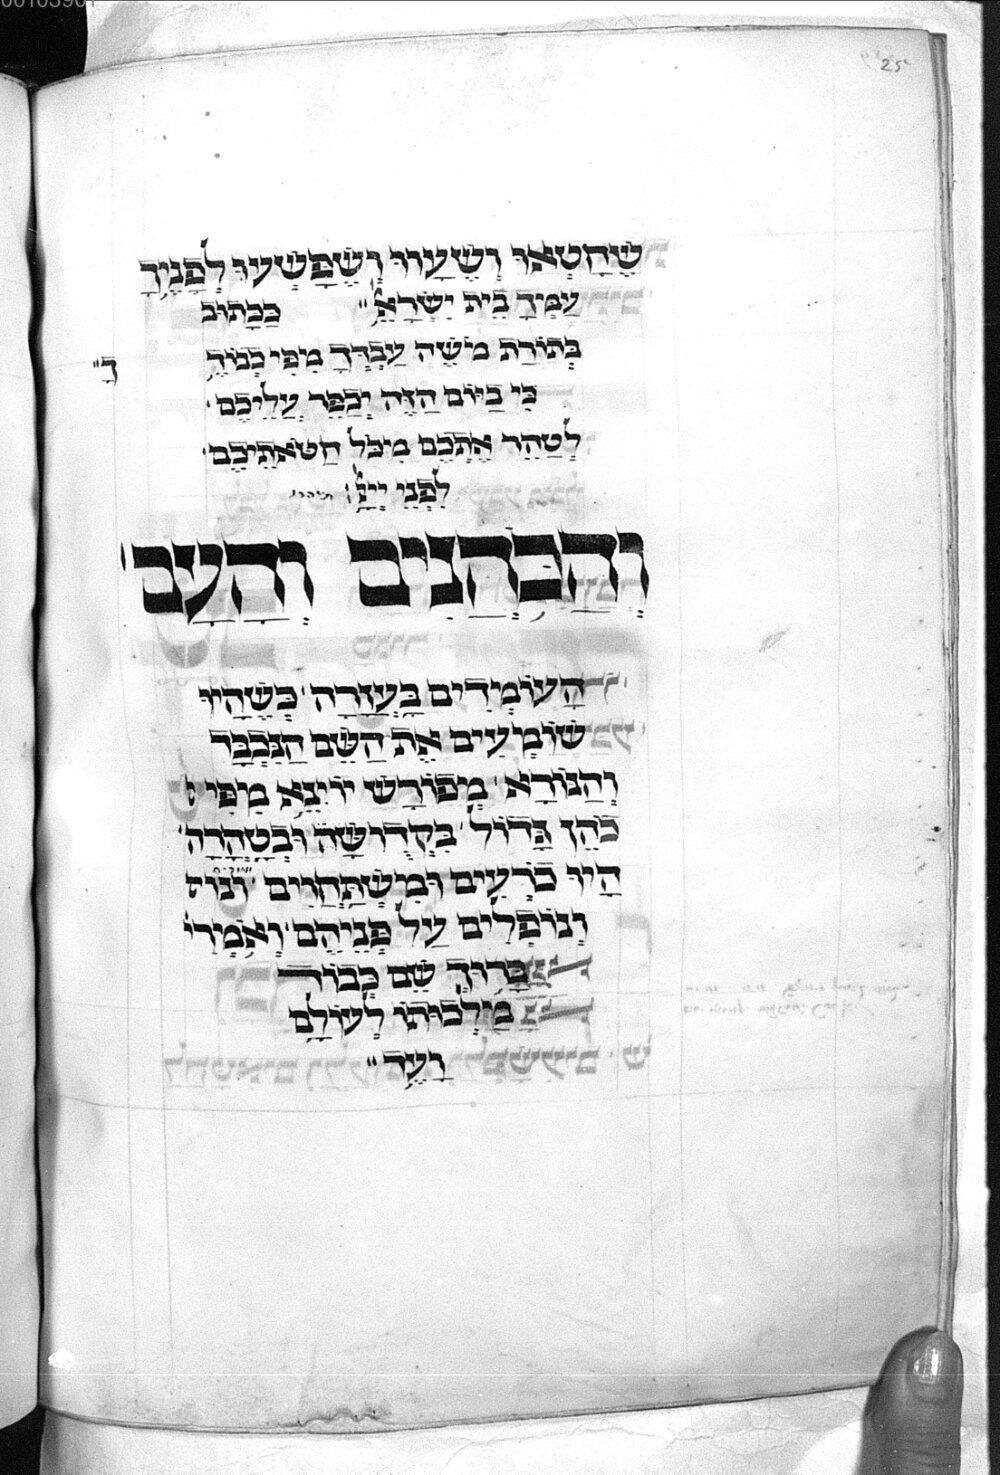 25
שֶׁחָטְאוּ וְשֶׁעָווּ וְשֶׁפָּשְׁעוּ לְפָנֶיךָ
עַמְּךָ בֵּית יִשְׂרָאֵ״ כַּכָּתוּב
בְּתוֹרַת מֹשֶׁה עַבְדֶּךָ מִפִּי כְבוֹדֶ
ךָ״
כִּי בַיּוֹם הַזֶּה יְכַפֵּר עֲלֵיכֶם
לְטַהֵר אֶתְכֶם מִכֹּל חַטֹּאתֵיכֶם
לִפְנֵי יְיָ׃
וְהַכֹּהֲנִים וְהָעָם
הָעוֹמְדִים בָּעֲזָרָה כְּשֶׁהָיוּ
שׁוֹמְעִים אֶת הַשֵּׁם הַנִּכְבָּד
וְהַנּוֹרָא מְפוֹרָשׁ יוֹצֵא מִפִּי
כֹהֵן גָּדוֹל בִּקְדוּשָּׁה וּבְטָהֳרָה
הָיוּ כֹּרְעִים וּמִשְׁתַּחֲוִים
וְנוֹפְלִים עַל פְּנֵיהֶם וְאֹמְרִי
בָּרוּךְ שֵׁם כְּבוֹד
מַלְכוּתוֹ לְעוֹלָם
וָעֶד״